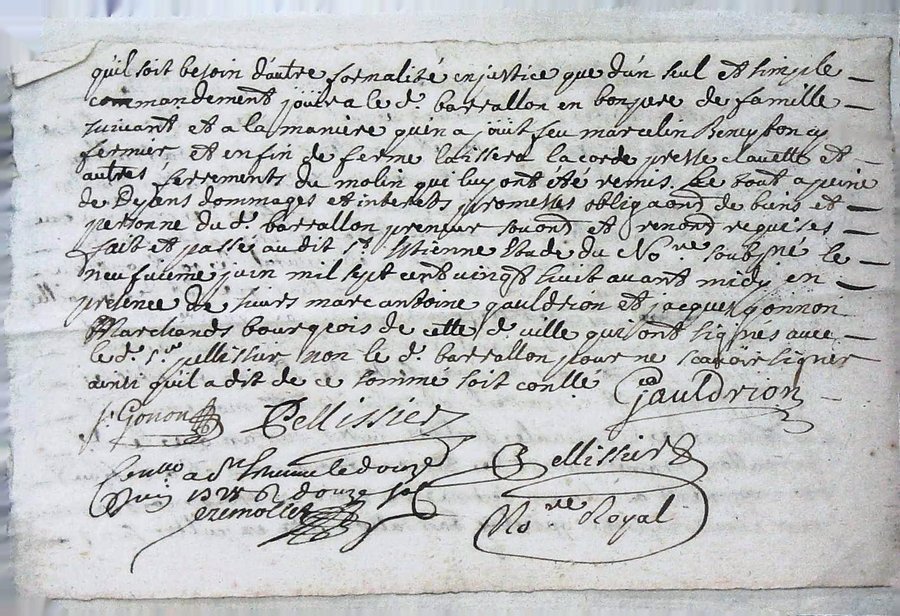 quil soit besoin dautre formalité en justice que dun seul et simple
commandement jouira le d. barrallon en bon pere de famille
suivant et a la maniere quen a jouit feu marcelin
fermier et en fin de ferme laissera la corde presse clauette et
autres ferrements du molin qui luy ont été remis. Le tout a peine
de depens dommages et interets promesses obligaons de biens et
personne du d. barrallon preneur soubm et renond requises
fait et passé audit St. Etienne Etude du Nore. soubzné le
neufuieme juin mil sept cent uingt huit auant midy en
presence de sieurs marc antoine gauldrion et jacques gonnon
Marchands bourgeois de cette d. ville qui ont signés auec
le d. sr. pellissier non le d. barrallon pour ne scauoir signer
ainsi quil a dit de ce sommé soit conllé
Gauldrion
J. Gonon Pellissier
a St Etienne le douze
Juin 1728 douze
Pellissier
Nore Royal